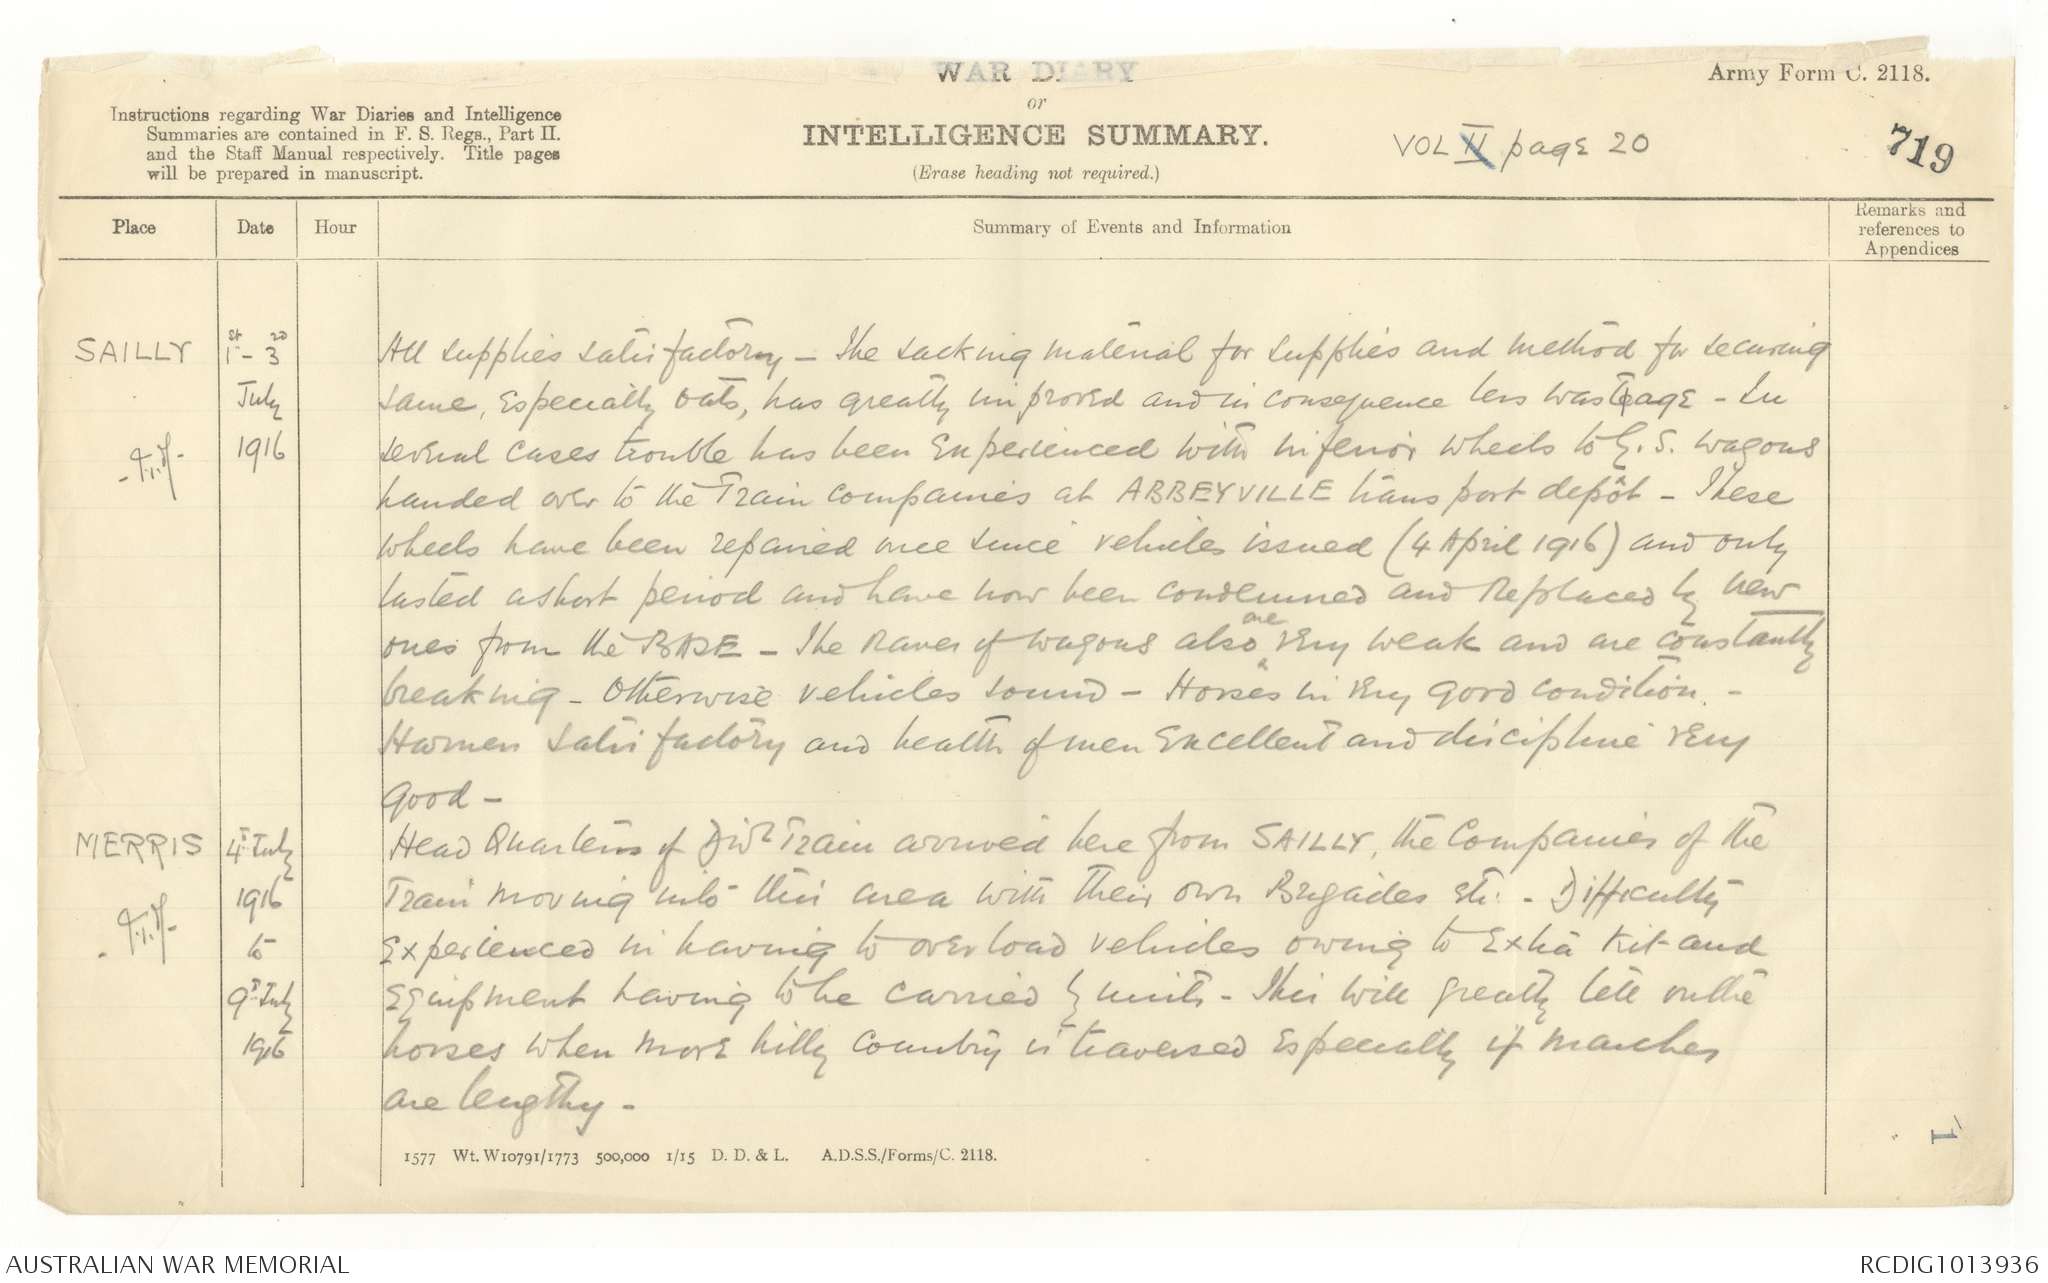 WAR DIARY
or
INTELLIGENCE SUMMARY.
(Erase heading not required.)
Army Form C. 2118.
Instructions regarding War Diaries and Intelligence
Summaries are contained in F. S. Regs., Part II.
and the Staff Manual respectively. Title pages
will be prepared in manuscript.
VOL VI page 20
719
Place
Date
Hour
Summary of Events and Information
Remarks and
references to
Appendices
SAILLY
1st - 3rd
July
1916
All supplies satisfactory - The sacking material for supplies and method for securing
same, especially oats, has greatly improved and in consequence less wastage - In
several cases trouble has been experienced with inferior wheels to G. S. wagons
handed over to the Train companies at ABBEYVILLE transport depôt - These
wheels have been repaired once since vehicles issued (4 April 1916) and only
lasted a short period and have now been condemned and replaced by new
ones from the BASE - The raves of wagons also are very weak and are constantly
breaking - Otherwise vehicles sound - Horses in very good condition. -
Harness satisfactory and health of men excellent and discipline very
good -
MERRIS
4th July
1916
to
9th July
1916
Head Quarters of Divl Train arrived here from SAILLY, the Companies of the
Train moving into this area with their own Brigades etc. - Difficulty
experienced in having to overload vehicles owing to extra kit and
equipment having to be carried by units - This will greatly tell on the
horses when more hilly country is traversed especially if marches
are lengthy -
1
1577 Wt. W10791/1773 500,000 1/15 D. D. & L. A.D.S.S./Forms/C. 2118.
AUSTRALIAN WAR MEMORIAL
RCDIG1013936